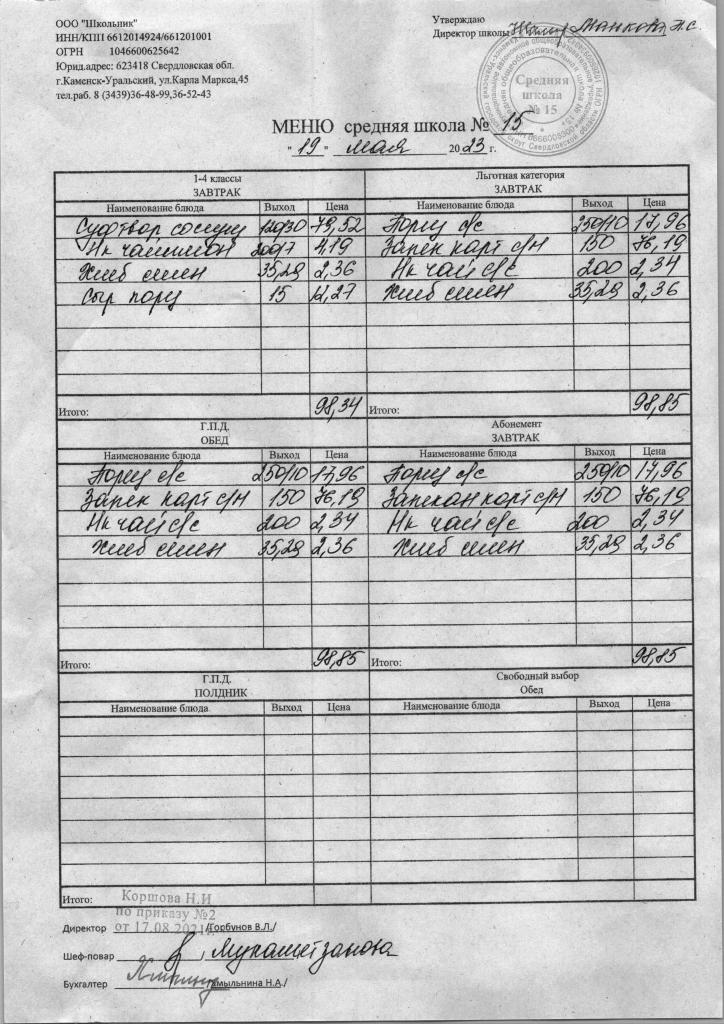 ООО "Школьник"
ИНН/КПП 6612014924/661201001
ОГРН 1046600625642
Юрид.адрес: 623418 Свердловская обл.
г.Каменск-Уральский, ул.Карла Маркса,45
тел.раб. 8 (3439)36-48-99,36-52-43
Утверждаю
Директор школы
Средняя
школа
№ 15
МЕНЮ средняя школа № 15
"19" мая 2023 г.
1-4 классы
ЗАВТРАК
Наименование блюда Выход Цена
Суф твор сгущ 120/30 79,52
Нк чай лимон 200/7 4,19
Хлеб смен 35,29 2,36
Сыр порц 15 12,27
Итого: 98,34
Льготная категория
ЗАВТРАК
Наименование блюда Выход Цена
250/10 17,96
Запек карт с/м 150 76,19
Нк чай с/с 200 2,34
Хлеб смен 35,29 2,36
Итого: 98,85
Г.П.Д.
ОБЕД
Наименование блюда Выход Цена
250/10 17,96
Запек карт с/м 150 76,19
Нк чай с/с 200 2,34
Хлеб смен 35,29 2,36
Итого: 98,85
Абонемент
ЗАВТРАК
Наименование блюда Выход Цена
250/10 17,96
Запекан карт с/м 150 76,19
Нк чай с/с 200 2,34
Хлеб смен 35,29 2,36
Итого: 98,85
Г.П.Д.
ПОЛДНИК
Наименование блюда Выход Цена
Итого:
Свободный выбор
Обед
Наименование блюда Выход Цена
Коршова Н.И
по приказу №2
от 17.08.2021г.
Директор /Горбунов В.Л./
Шеф-повар / Мухаметзанова
Бухгалтер Мыльнина Н.А./